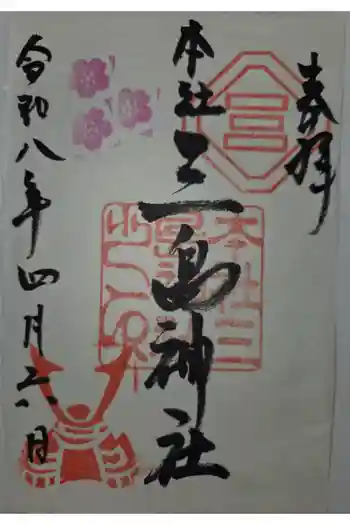 奉拝
本社
三島神社
令和八年四月六日
本社三
島神社
之印